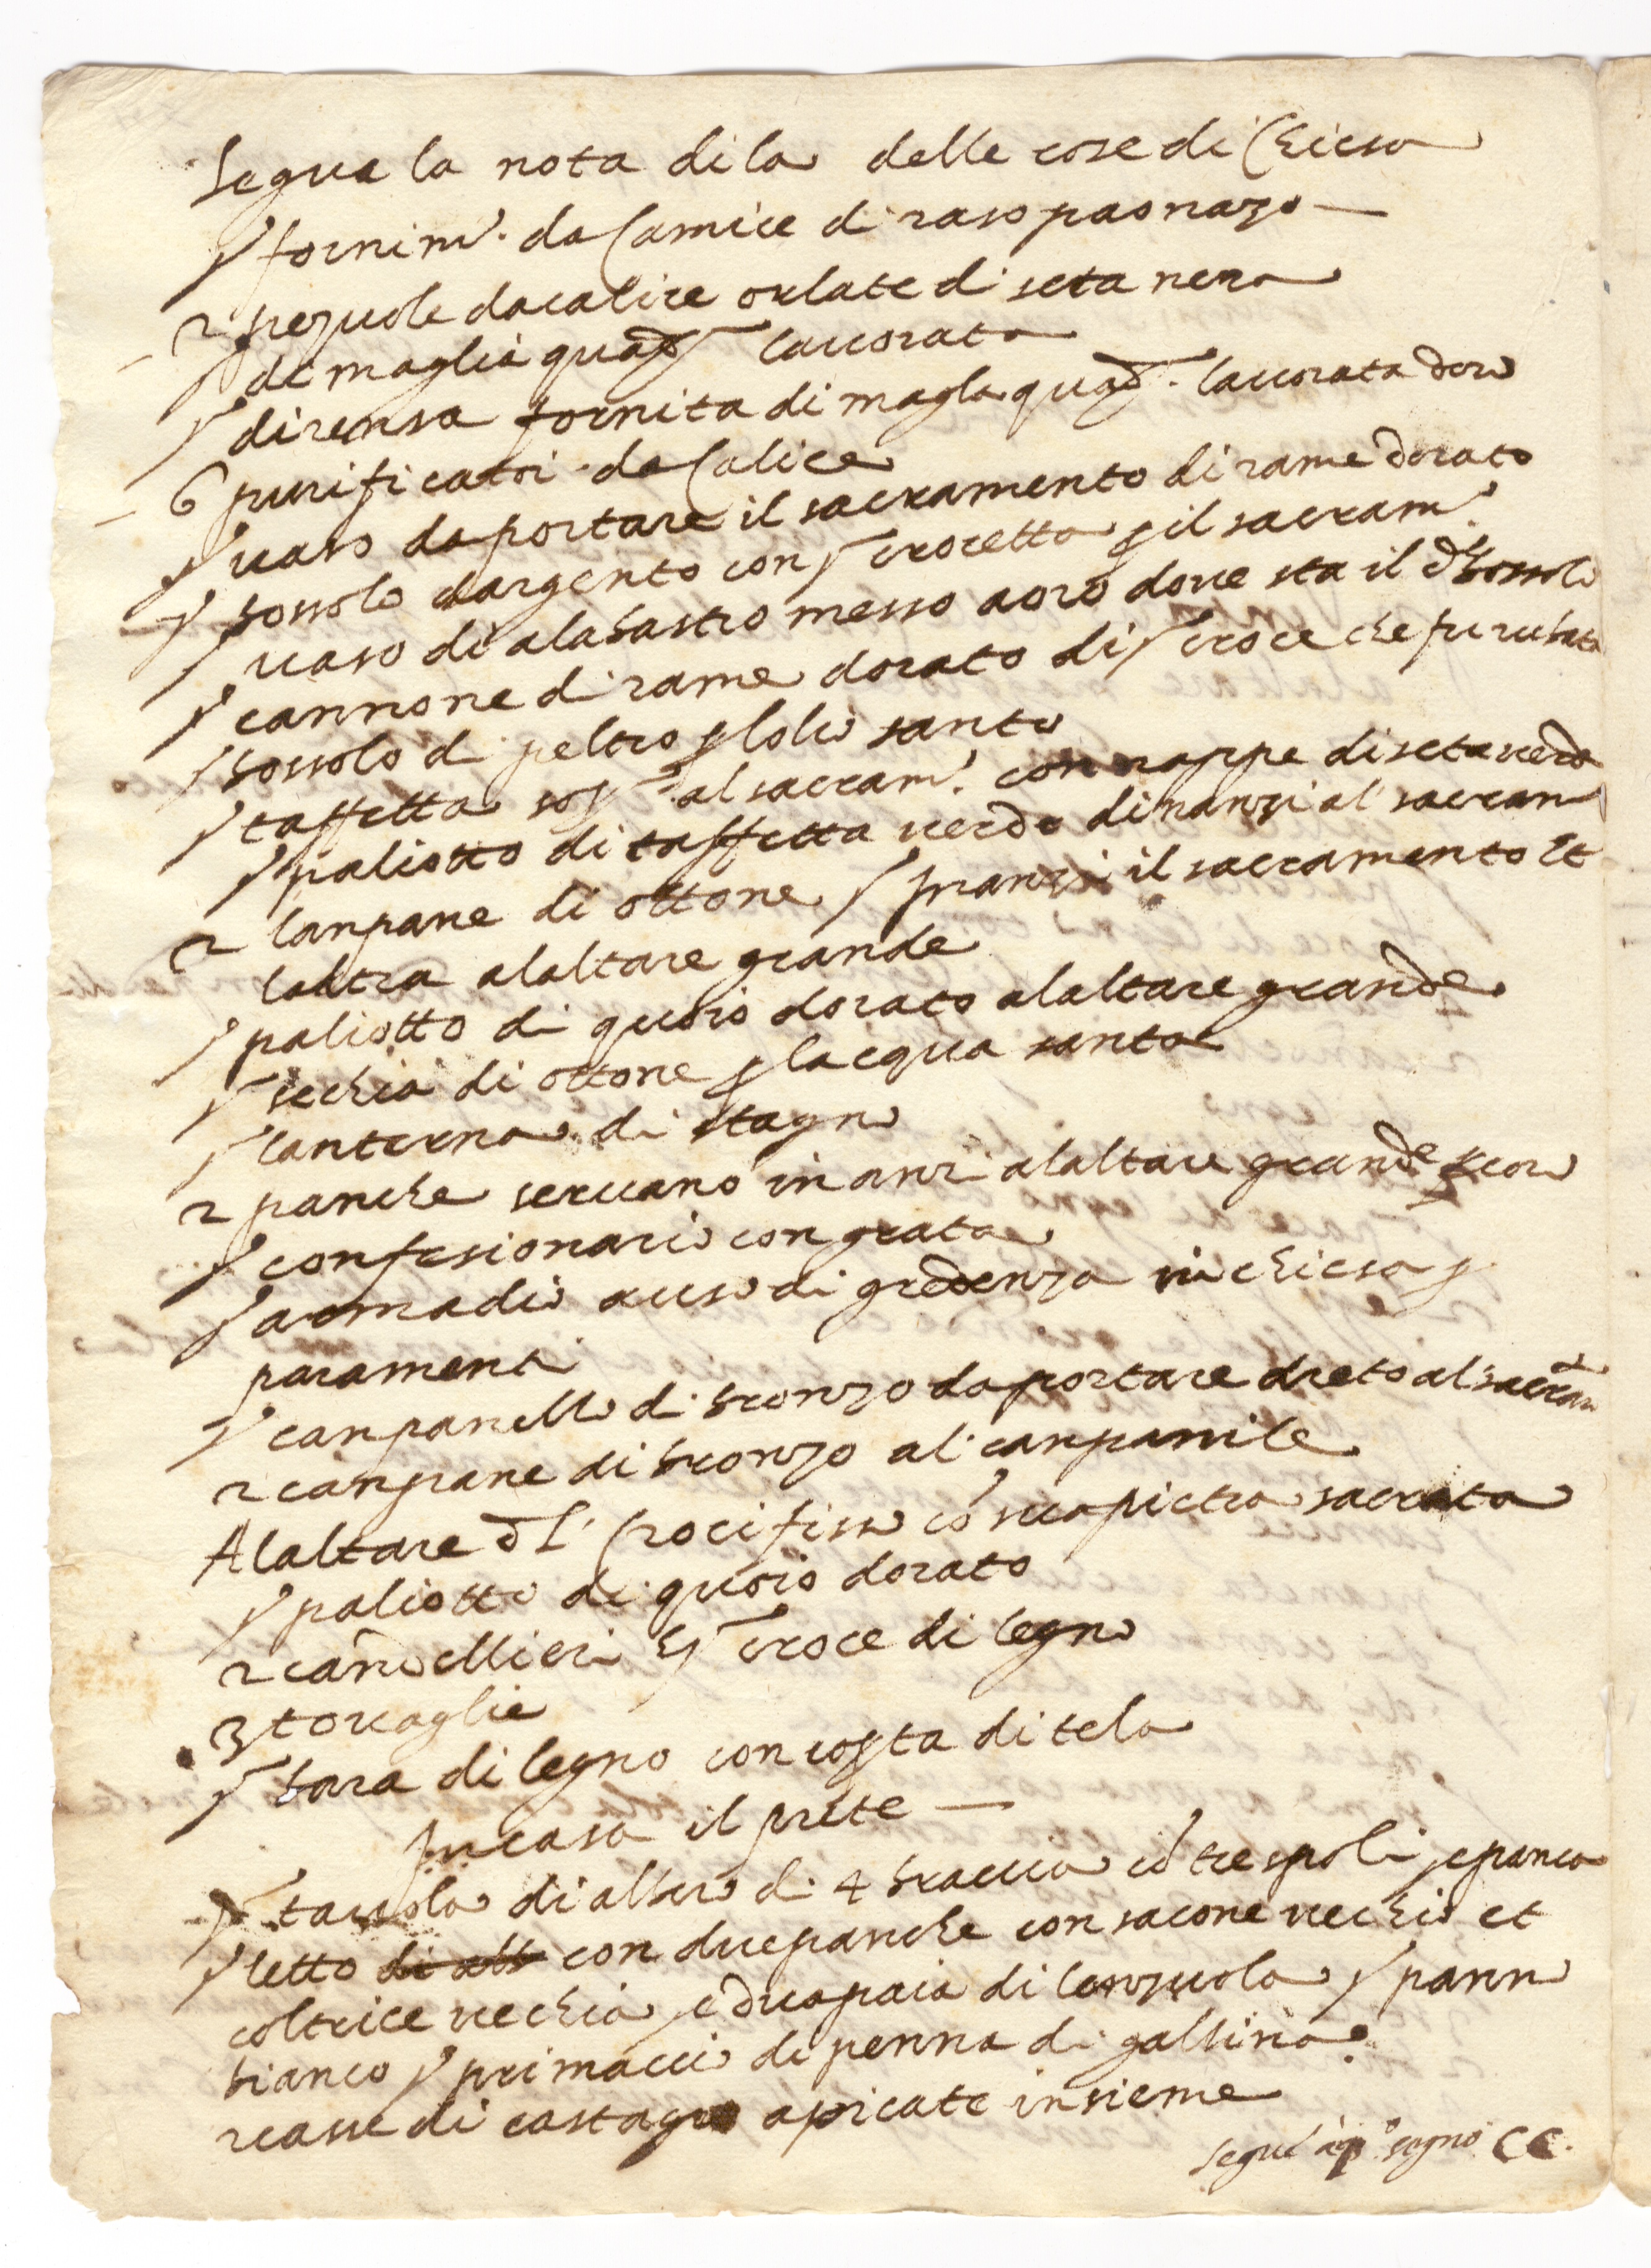 Segue la nota di la delle cose di Chiesa
1 fornim.to da Camice di raso paonazo —
2 pezuole da calice orlate di seta nera
1 di maglia quad.a lauorata
1 di rensa fornita di magla quad.a lauorata doro
6 purificatoi da Calice
1 uaso da portare il sacramento di rame dorato
1 bossolo dargento con 1 crocetta p il sacram.to
1 uaso di alabastro messo aoro doue sta il do bossolo
1 cannone di rame dorato di 1 croce che fu rubata
1 bossolo di peltro p lolio santo
1 taffetta sop.a al sacram.to con nappe di seta uerde
1 paliotto di taffetta uerde dinanzi al sacram
2 lanpane di ottone 1 inanzi il sacramento et
laltra alaltare grande
1 paliotto di quoio dorato alaltare grande
1 sechia di ottone p lacqua santa
1 lanterna di stagno
2 panche seruano inanzi alaltare grande p coro
1 confesionario con grata
1 armadio auso di gredenza in chiesa p
paramenti
1 canpanello di bronzo da portare dreto al sacram
2 canpane di bronzo al canpanile
Alaltare dl Crocifisso co sua pietra sacrata
1 paliotto di quoio dorato
2 candellieri et 1 croce di legno
3 touaglie
1 bara di legno con copta di tela
In casa il prete —
1 tauola di albero di 4 braccia co trespoli, e panca
1 letto di alb con due panche con sacone uechio et
coltrice uechia, e dua paia di lenzuola 1 panno
bianco 1 primaccio di penna di gallina
2 casse di castagno apicate insieme
Segue a q.o segno CC.